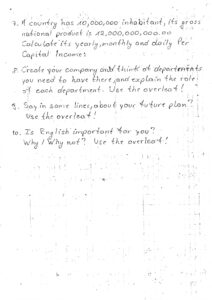 7. A country has 10,000,000 inhabitant, its gross
national product is 12,000,000,000.00
Calculate its yearly, monthly and daily Per
Capital Income?
8. Create your company and think of departements
you need to have there, and explain the role
of each department. Use the overleaf!
9. Say in some lines, about your future plan?
Use the overleaf!
10. Is English important for you?
Why / Why not? Use the overleaf!